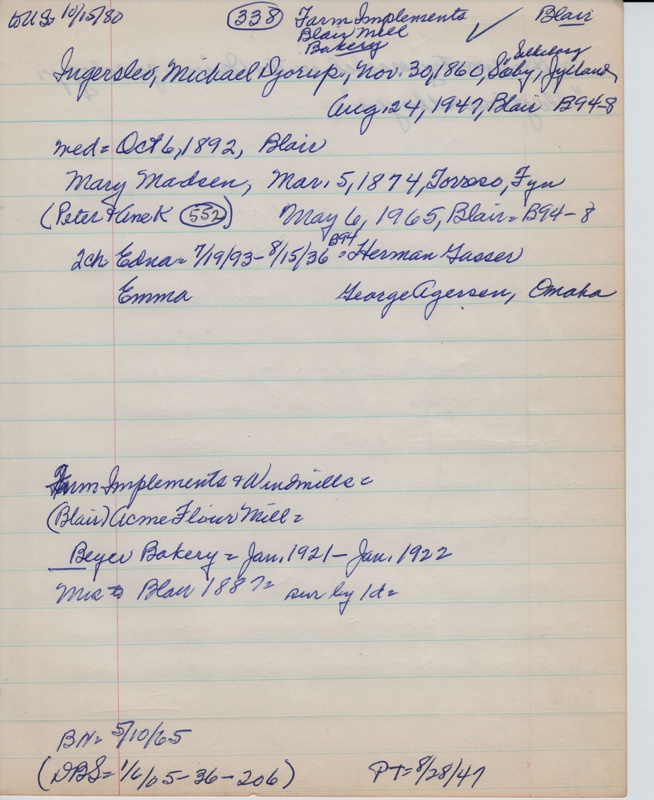 to US= 10/15/80 (338) Farm Implements Blair
Blair Mill
Bakery
Ingerslev, Michael Djorup, Nov. 30, 1860, Soby, Jylland
Aug. 24, 1947, Blair B94-8
med= Oct 6, 1892, Blair
Mary Madsen, Mar. 5, 1874, Torroso, Fyn
(Peter & Ane K (552)) May 6, 1965, Blair= B94-8
2ch Edna= 7/19/93- 8/15/36 B94 = Herman Gasser
Emma George Agersen, Omaha
Farm Implements & Windmills=
(Blair) Acme Flour Mill=
Beyer Bakery= Jan. 1921- Jan. 1922
Blair 1887= sur by 1d=
BN= 5/10/65
(DBS= 1/6/05-36-206) PT= 8/28/47